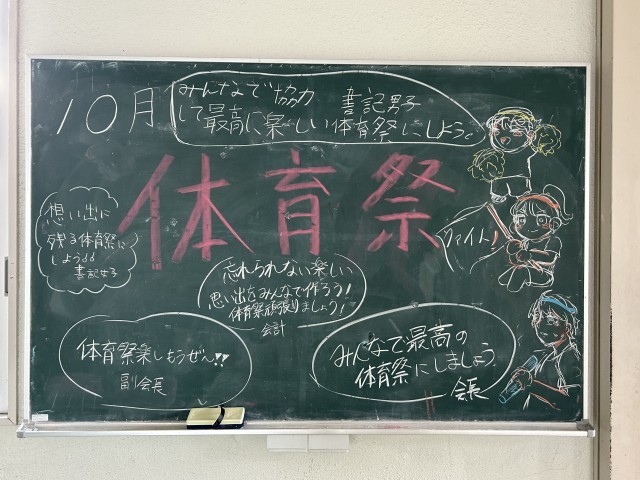 10月
みんなで協力
して最高に楽しい体育祭にしよう。
書記男子
体育祭
想い出に
残る体育祭に
しよう!!
書記女子
ファイト!
忘れられない楽しい
思い出をみんなで作ろう!
体育祭頑張りましょう!
会計
体育祭楽しもうぜい!!
副会長
みんなで最高の
体育祭にしましょう。
会長